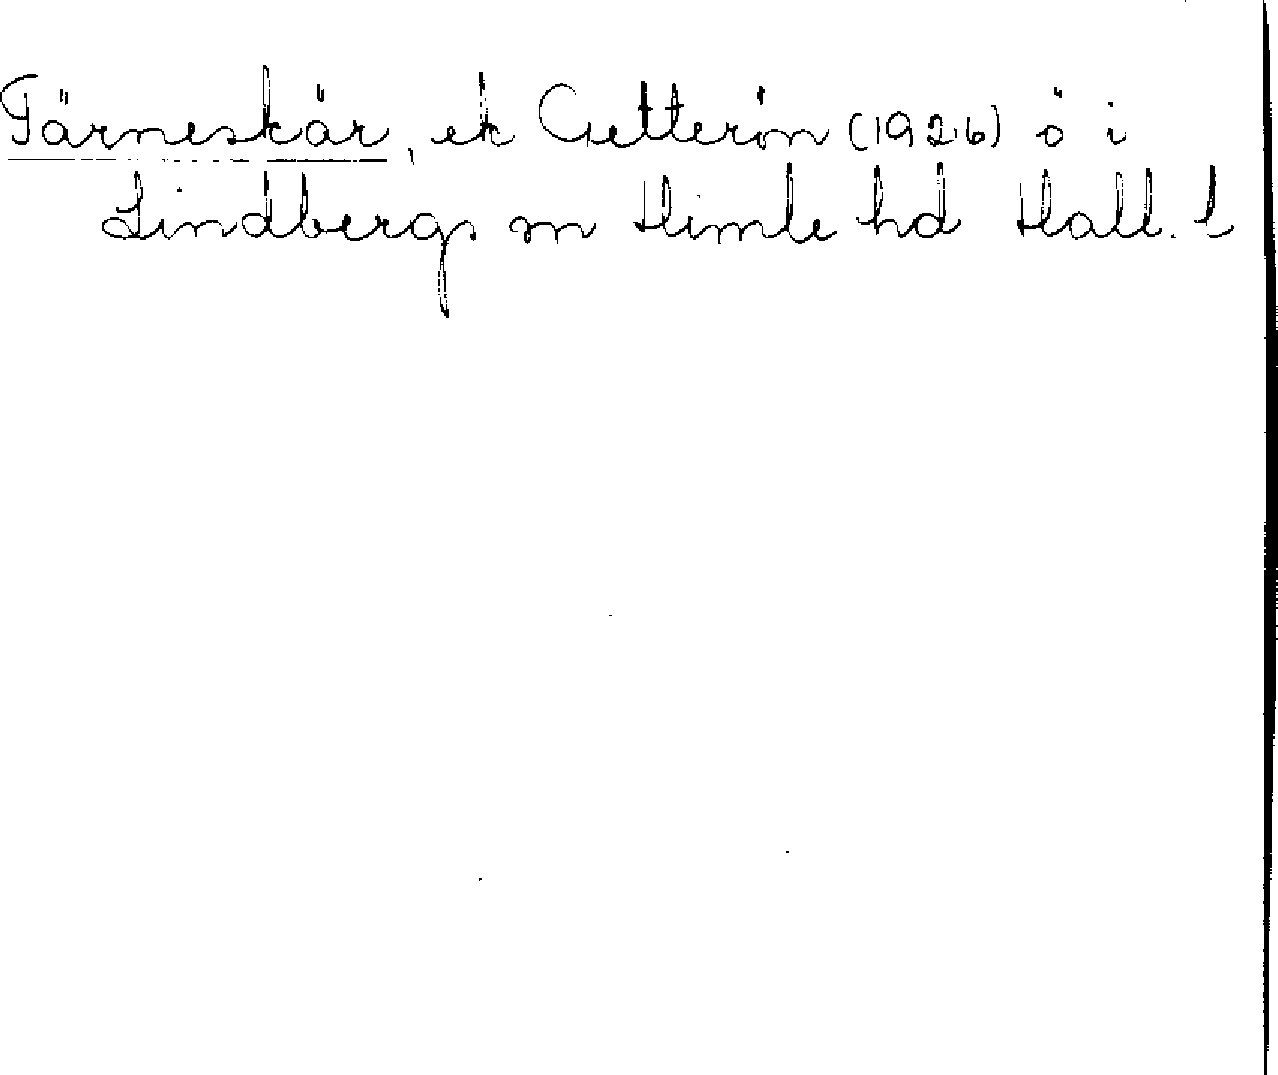 Tärneskär, ek Getterön (1926) ö i
Lindbergs sn Himle hd Hall. l